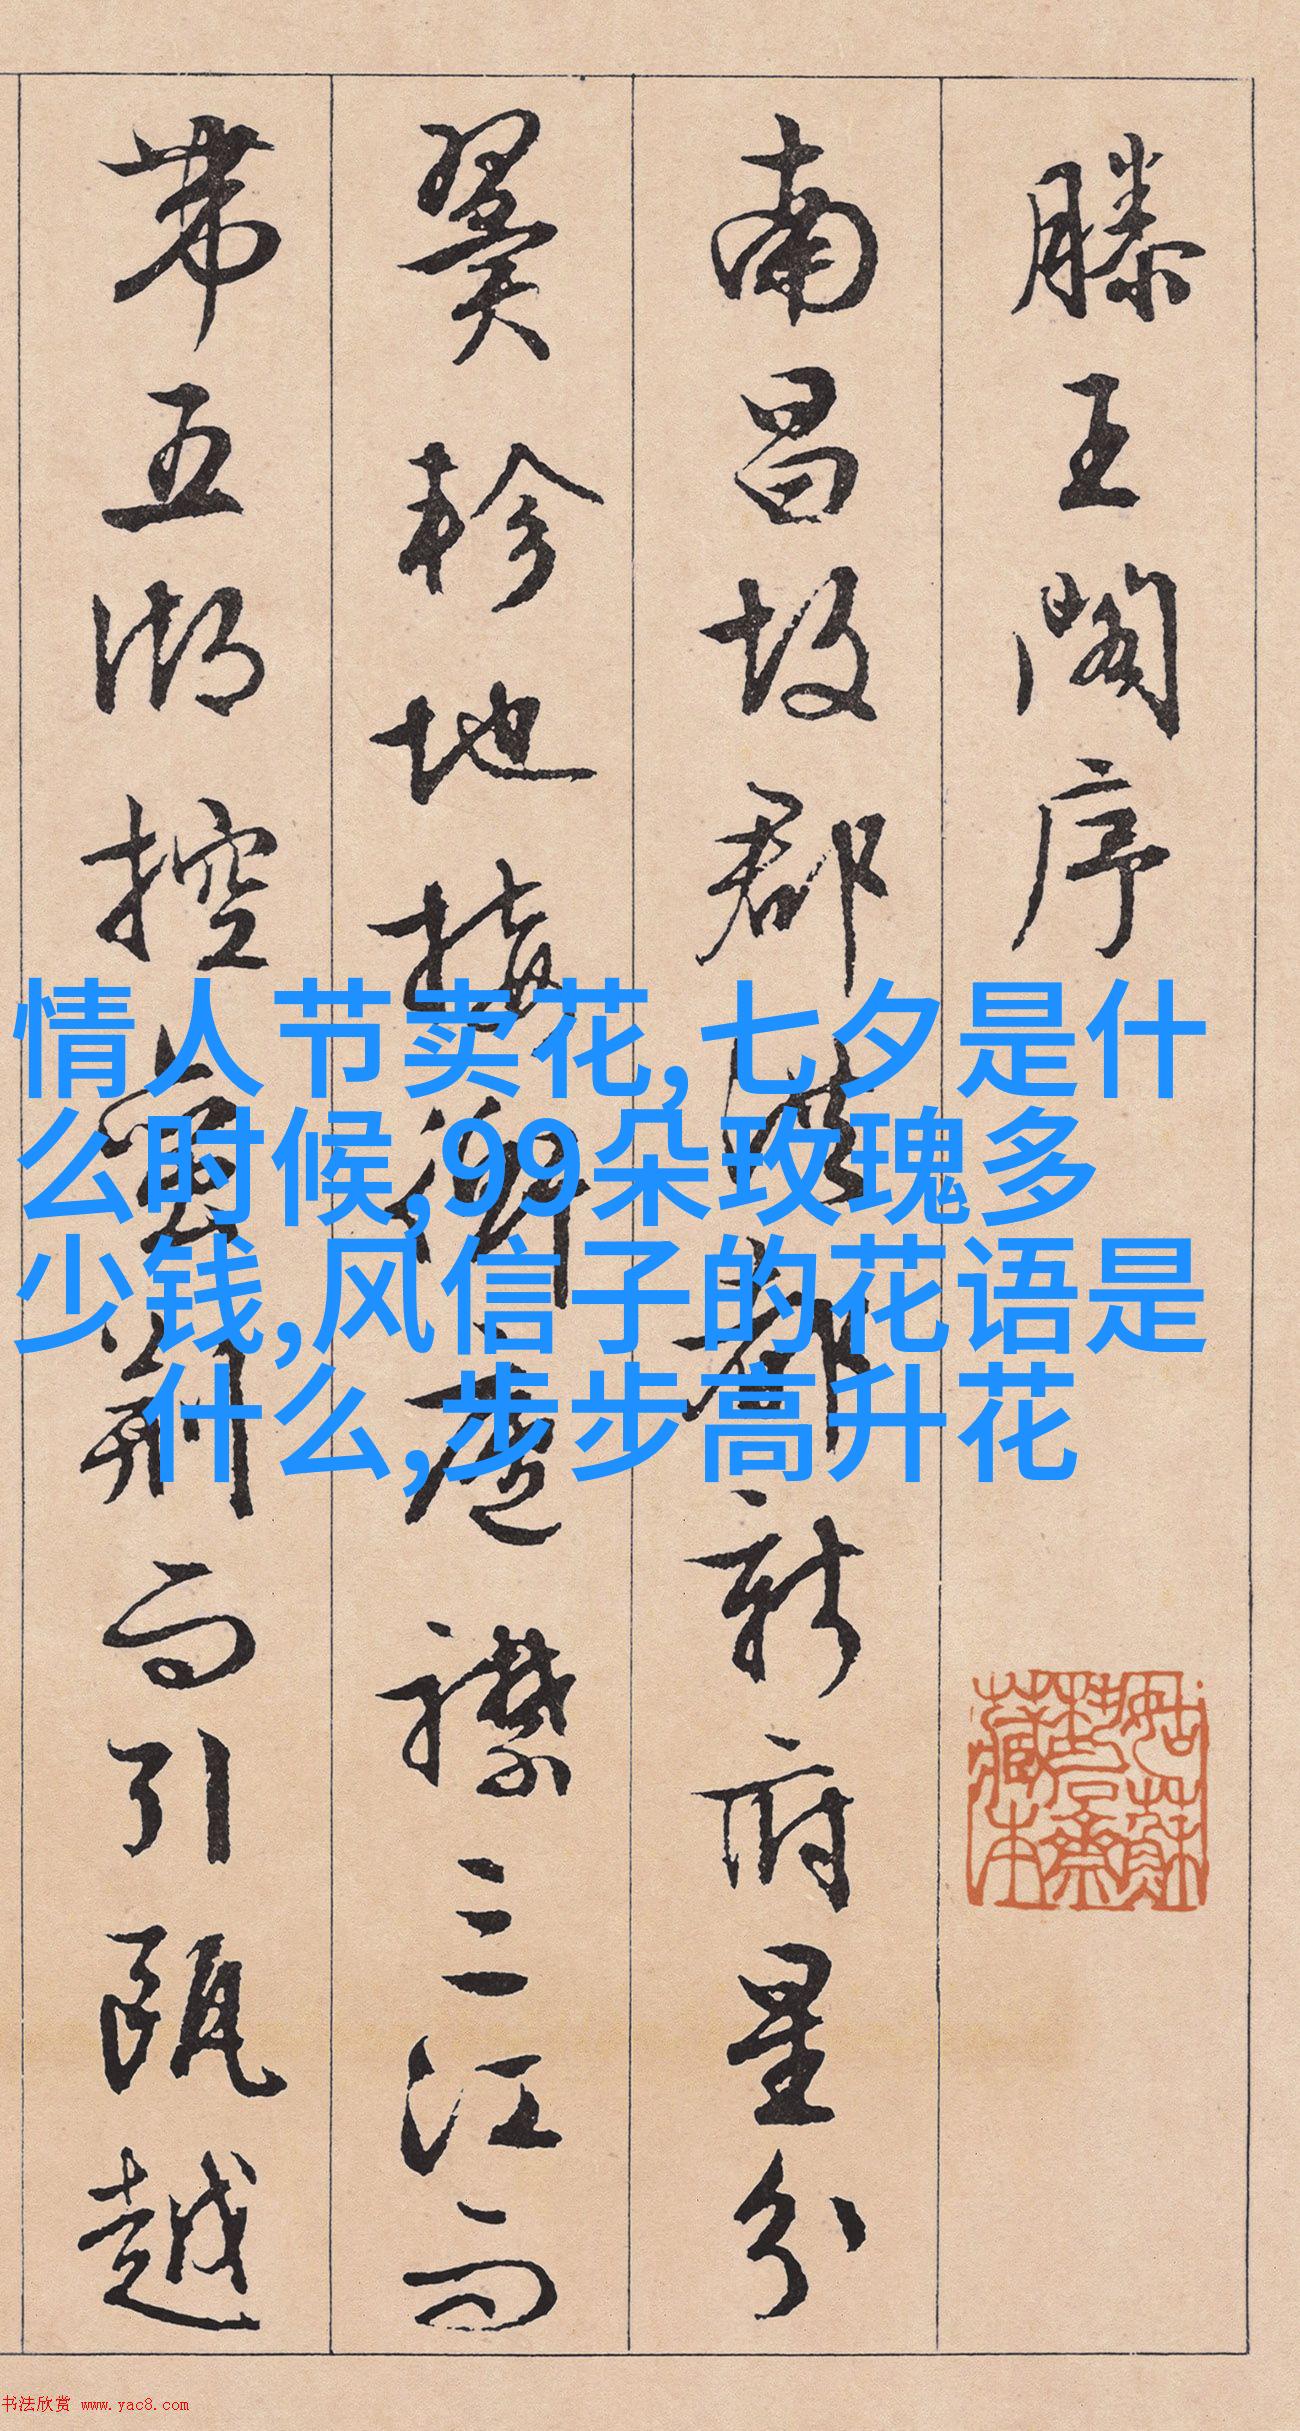 滕王閣序
南昌故郡洪都新府星分
翼軫地接衡廬襟三江而
帶五湖控蠻荆而引甌越
情人节卖花,七夕是什
么时候,99朵玫瑰多
少钱,风信子的花语是
什么,步步高升花
书法欣赏 www.yac8.com